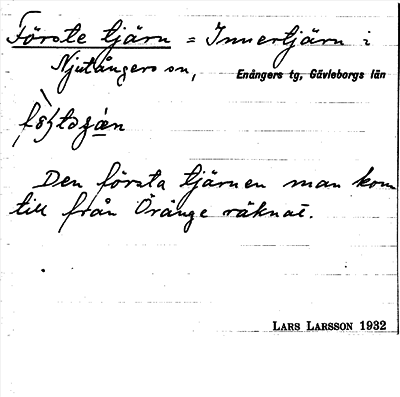 Förste tjärn = Innertjärn i
Njutångers sn, Enångers tg, Gävleborgs län
Den första tjärnen man kom
till från Öränge räknat.
LARS LARSSON 1932